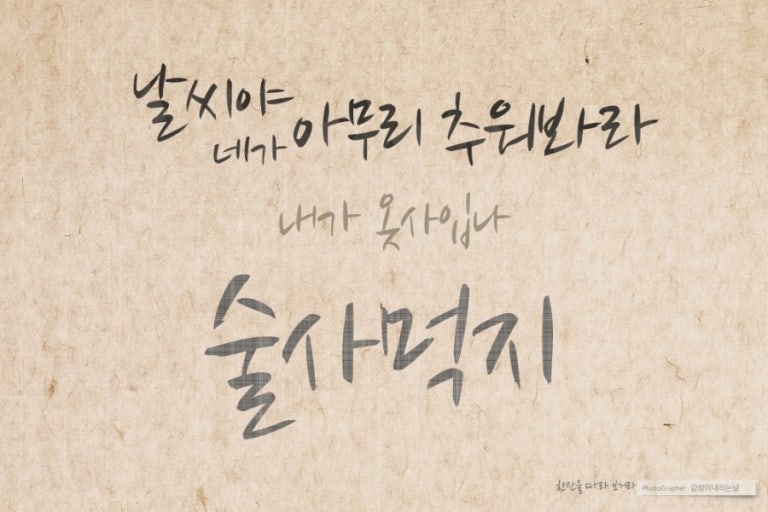 날씨야
네가 아무리 추워봐라
내가 옷사입나
술사먹지
한잔을 따라 보거라 PhotoGrapher 감성이내리는날